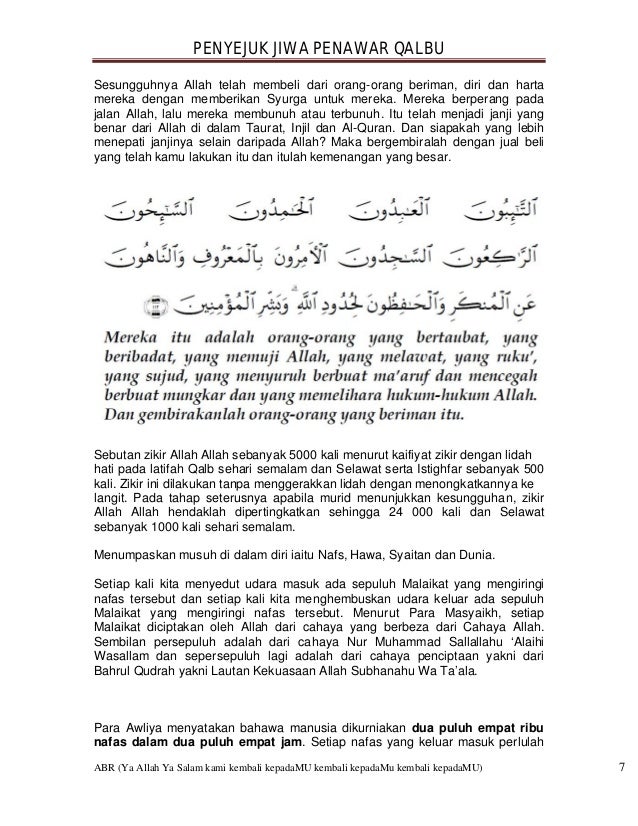 PENYEJUK JIWA PENAWAR QALBU
Sesungguhnya Allah telah membeli dari orang-orang beriman, diri dan harta
mereka dengan memberikan Syurga untuk mereka. Mereka berperang pada
jalan Allah, lalu mereka membunuh atau terbunuh. Itu telah menjadi janji yang
benar dari Allah di dalam Taurat, Injil dan Al-Quran. Dan siapakah yang lebih
menepati janjinya selain daripada Allah? Maka bergembiralah dengan jual beli
yang telah kamu lakukan itu dan itulah kemenangan yang besar.
ٱلتَّـٰٓئِبُونَ ٱلْعَـٰبِدُونَ ٱلْحَـٰمِدُونَ ٱلسَّـٰٓئِحُونَ
ٱلرَّٰكِعُونَ ٱلسَّـٰجِدُونَ ٱلْـَٔامِرُونَ بِٱلْمَعْرُوفِ وَٱلنَّاهُونَ
عَنِ ٱلْمُنكَرِ وَٱلْحَـٰفِظُونَ لِحُدُودِ ٱللَّهِ ۗ وَبَشِّرِ ٱلْمُؤْمِنِينَ ﴿١١٢﴾
Mereka itu adalah orang-orang yang bertaubat, yang
beribadat, yang memuji Allah, yang melawat, yang ruku’,
yang sujud, yang menyuruh berbuat ma’aruf dan mencegah
berbuat mungkar dan yang memelihara hukum-hukum Allah.
Dan gembirakanlah orang-orang yang beriman itu.
Sebutan zikir Allah Allah sebanyak 5000 kali menurut kaifiyat zikir dengan lidah
hati pada latifah Qalb sehari semalam dan Selawat serta Istighfar sebanyak 500
kali. Zikir ini dilakukan tanpa menggerakkan lidah dengan menongkatkannya ke
langit. Pada tahap seterusnya apabila murid menunjukkan kesungguhan, zikir
Allah Allah hendaklah dipertingkatkan sehingga 24 000 kali dan Selawat
sebanyak 1000 kali sehari semalam.
Menumpaskan musuh di dalam diri iaitu Nafs, Hawa, Syaitan dan Dunia.
Setiap kali kita menyedut udara masuk ada sepuluh Malaikat yang mengiringi
nafas tersebut dan setiap kali kita menghembuskan udara keluar ada sepuluh
Malaikat yang mengiringi nafas tersebut. Menurut Para Masyaikh, setiap
Malaikat diciptakan oleh Allah dari cahaya yang berbeza dari Cahaya Allah.
Sembilan persepuluh adalah dari cahaya Nur Muhammad Sallallahu ‘Alaihi
Wasallam dan sepersepuluh lagi adalah dari cahaya penciptaan yakni dari
Bahrul Qudrah yakni Lautan Kekuasaan Allah Subhanahu Wa Ta’ala.
Para Awliya menyatakan bahawa manusia dikurniakan dua puluh empat ribu
nafas dalam dua puluh empat jam. Setiap nafas yang keluar masuk perlulah
ABR (Ya Allah Ya Salam kami kembali kepadaMU kembali kepadaMu kembali kepadaMU) 7